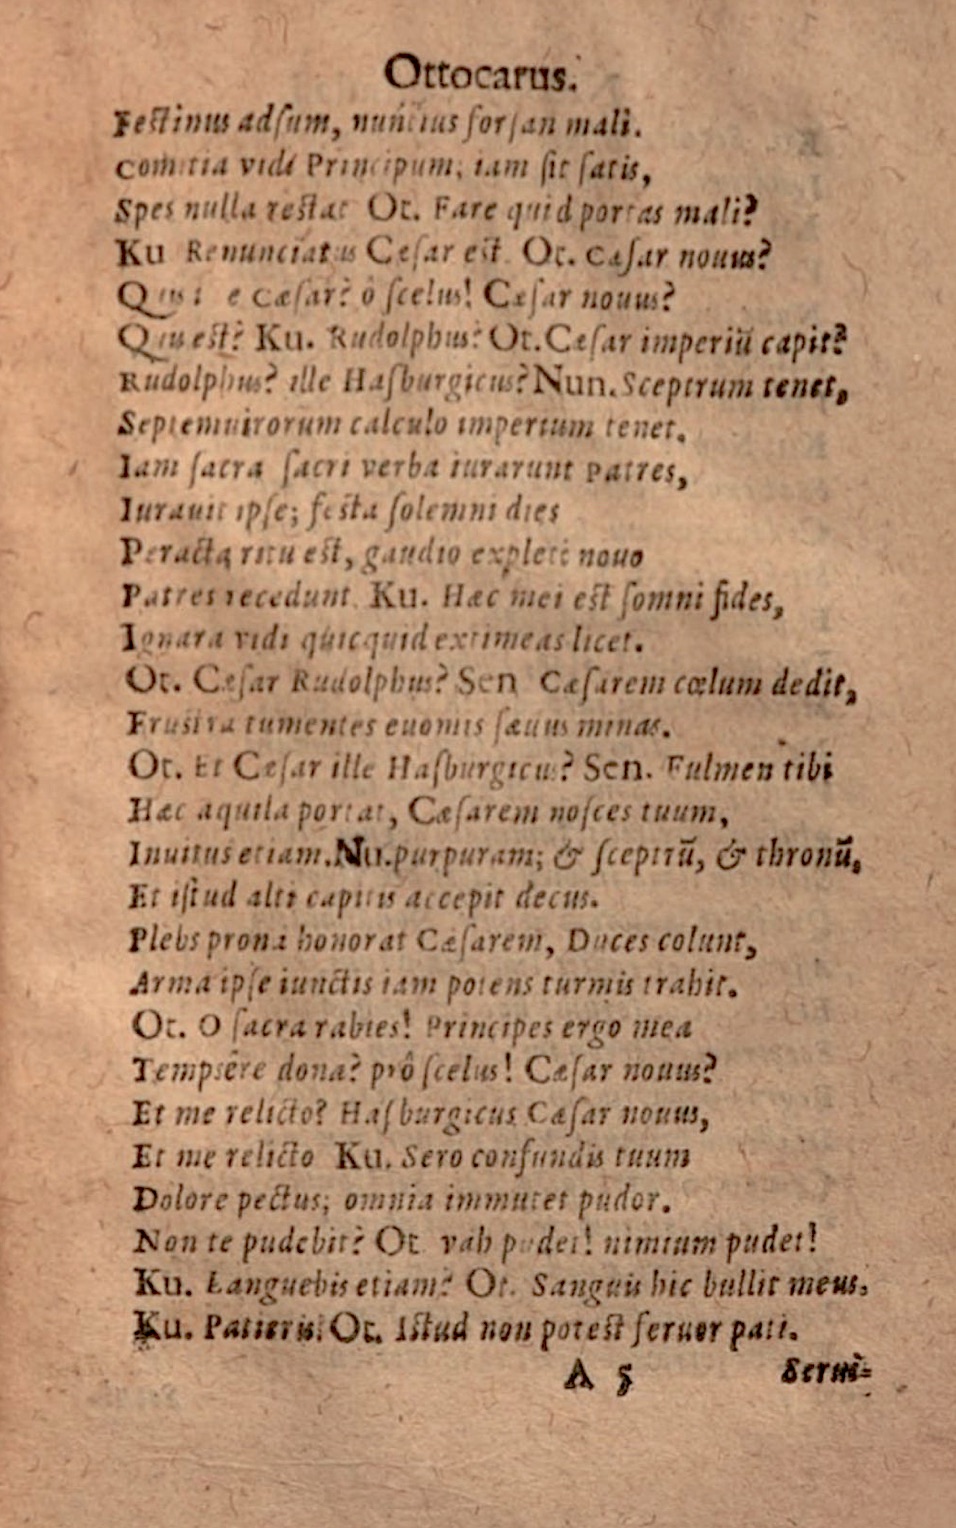 Ottocarus.
Festinus adſum, nuncius forſan mali.
Comitia vidi Principum, iam ſit ſatis,
Spes nulla reſtat Ot. Fare quid portas mali?
Ku Renunciatus Cæſar eſt Ot. Cæſar nouus?
e Cæſar? ô ſcelus! Cæſar nouus?
Quis eſt? Ku. Rudolphus? Ot. Cæſar imperiū capit?
Rudolphus? ille Haſburgicus? Nun. Sceptrum tenet,
Septemuirorum calculo imperium tenet.
Iam ſacra ſacri verba iurarunt Patres,
Iurauit ipſe; feſta ſolemni dies
Peracta ritu eſt, gaudio expleti nouo
Patres recedunt Ku. Hæc mei eſt ſomni fides,
Ignara vidi quicquid extimeas licet.
Ot. Cæſar Rudolphus? Sen Cæſarem cœlum dedit,
Fruſtra tumentes euomis ſæuus minas.
Ot. Et Cæſar ille Haſburgicus? Sen. Fulmen tibi
Hæc aquila portat, Cæſarem noſces tuum,
Inuitus etiam. Nu. purpuram; & ſceptrū, & thronū,
Et iſtud alti capitis accepit decus.
Plebs prona honorat Cæſarem, Duces colunt,
Arma ipſe iunctis iam potens turmis trahit.
Ot. O ſacra rabies! Principes ergo mea
Tempsêre dona? prô ſcelus! Cæſar nouus?
Et me relicto? Haſburgicus Cæſar nouus,
Et me relicto Ku. Sero confundis tuum
Dolore pectus; omnia immutet pudor.
Non te pudebit? Ot vah pudet! nimium pudet!
Ku. Languebis etiam? Ot. Sanguis hic bullit meus.
Ku. Patieris. Ot. Iſtud non poteſt feruor pati.
A 5 Serui-